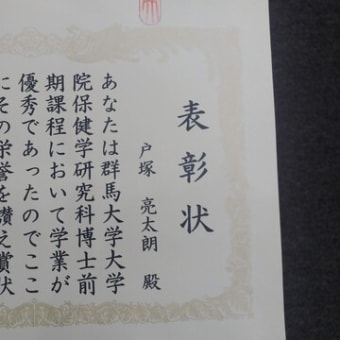 表彰状
戸塚 亮太朗 殿
あなたは群馬大学大学
院保健学研究科博士前
期課程において学業が
優秀であったのでここ
にその栄誉を讃え賞状